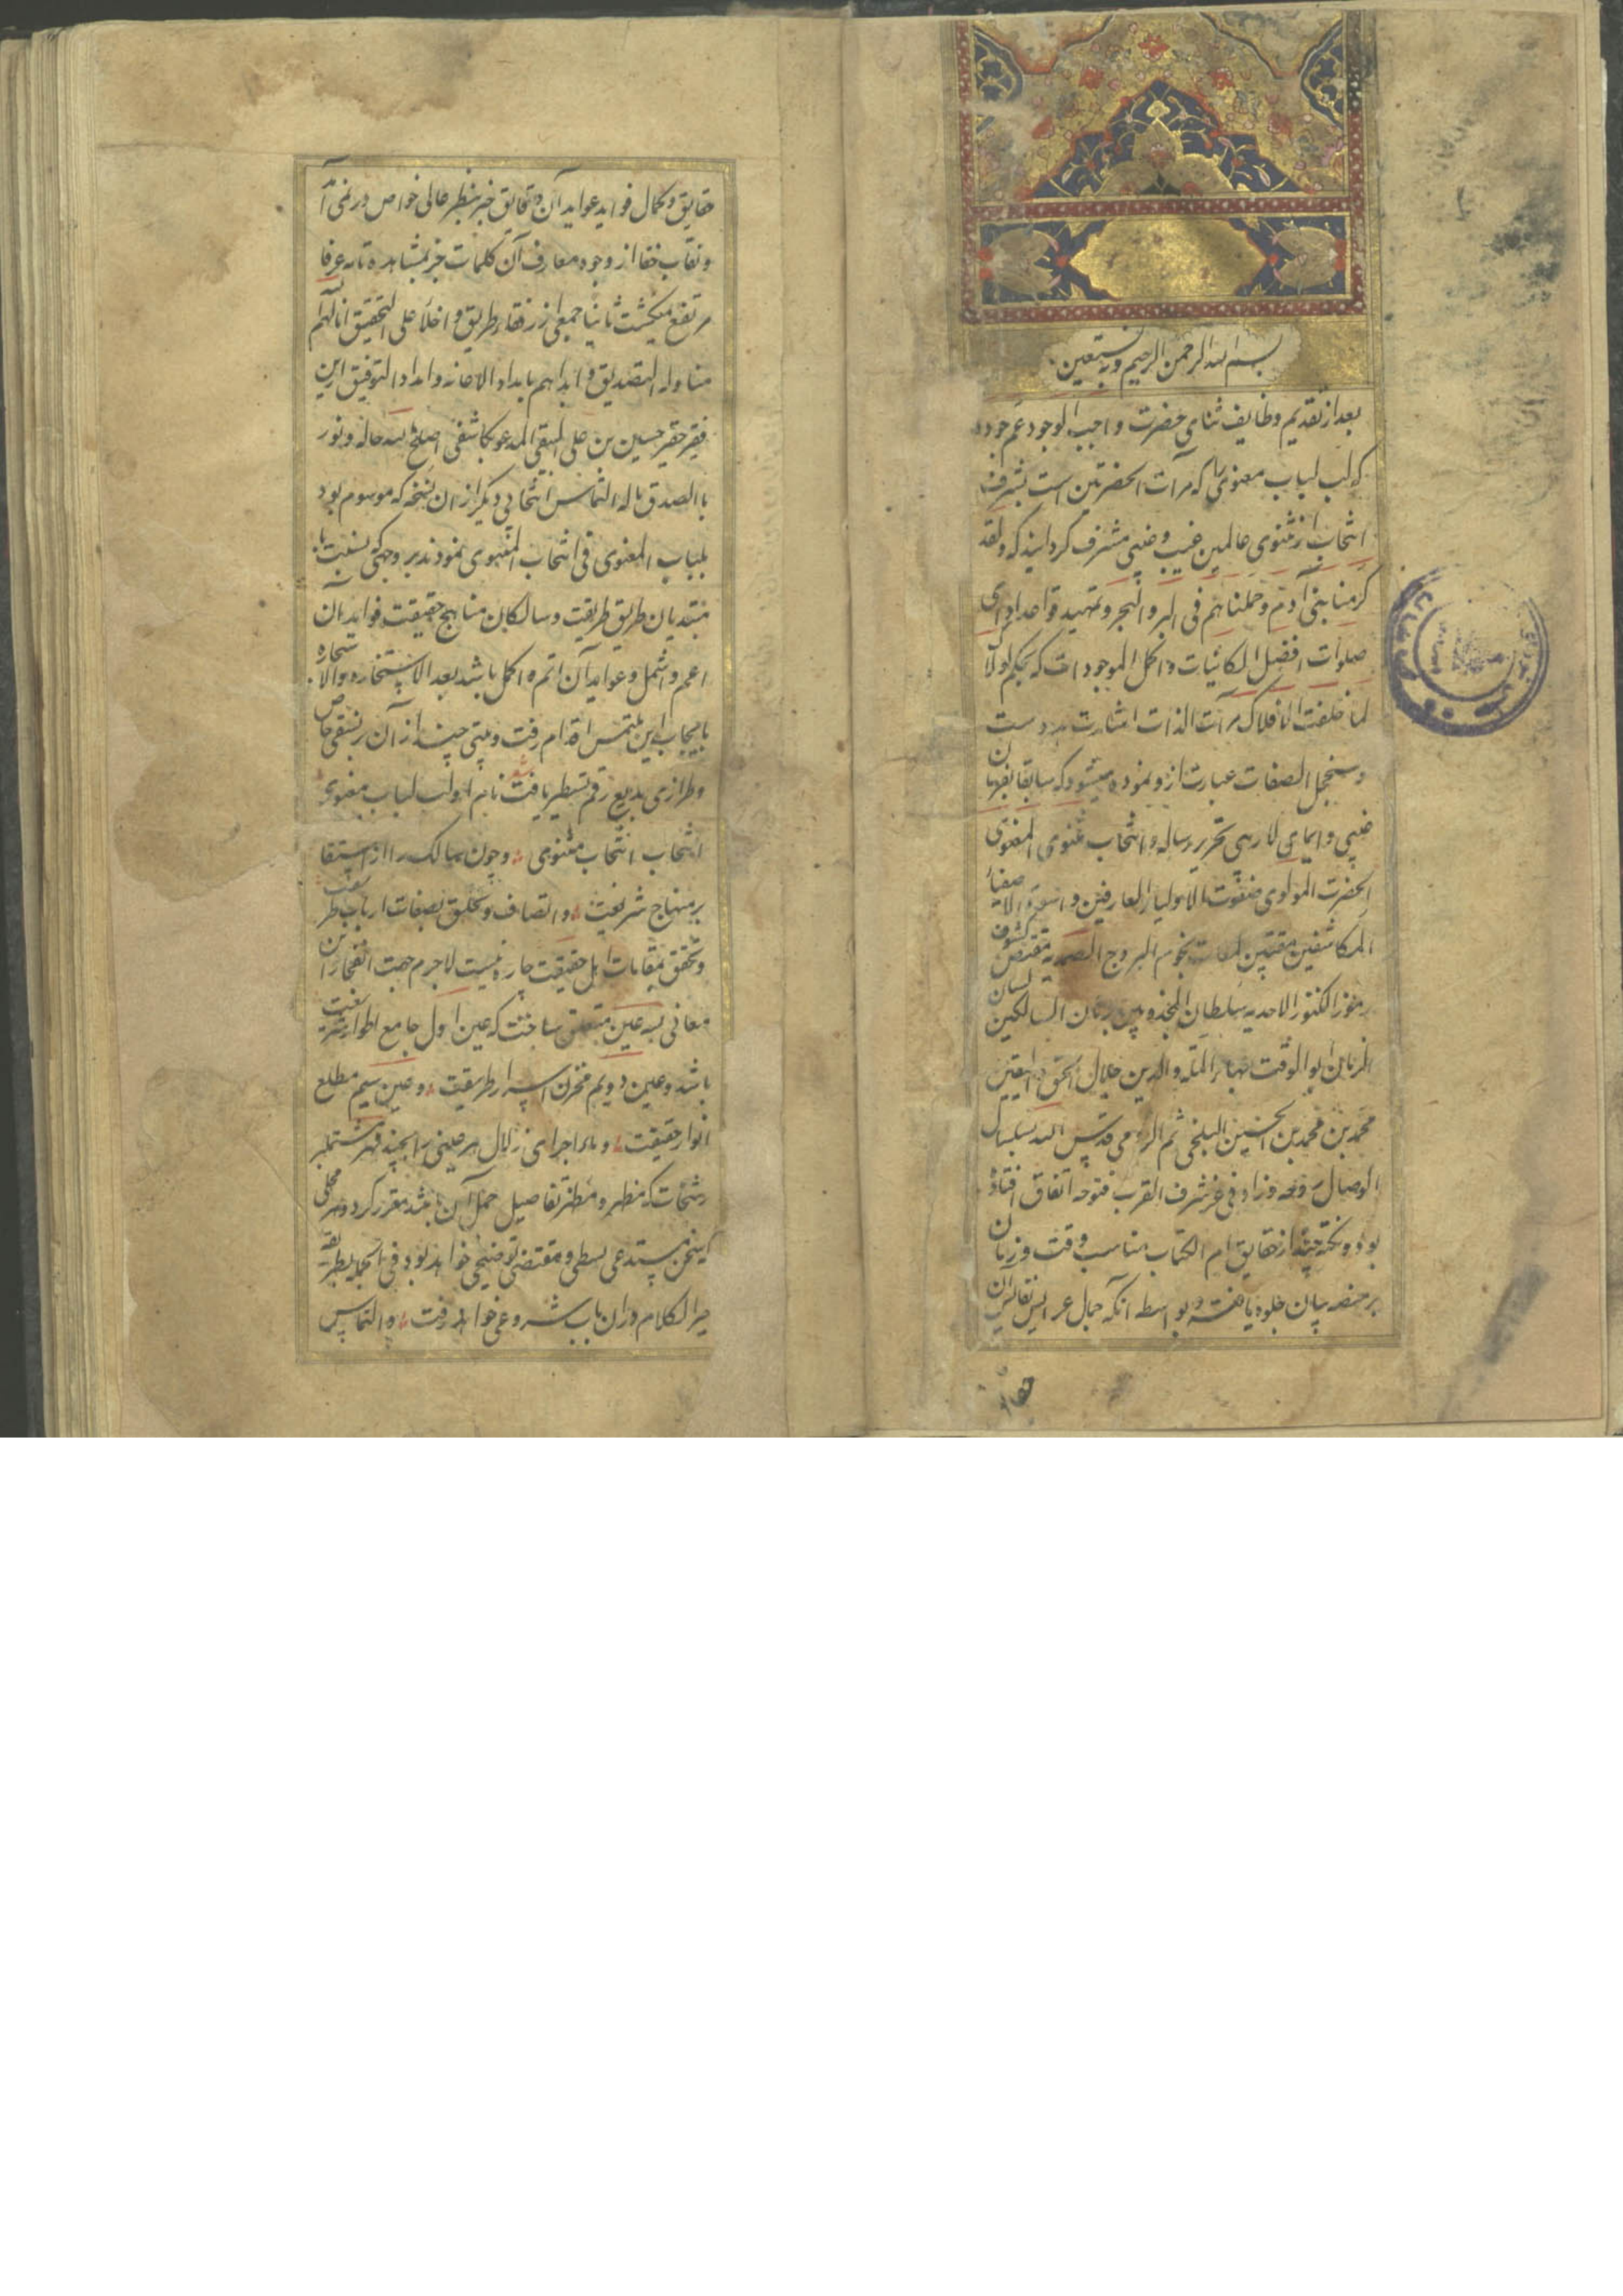 بسم الله الرحمن الرحیم وبه نستعین
بعد از تقدیم وظایف ثنای حضرت واجب الوجود عم جوده
که لب لباب معنوی را که مرآت الحضرتین است بشرف
انتخاب از مثنوی عالمین غیب و مشرف گردانید که ولقد
کرمنا بنی آدم وحملناهم فی البر والبحر و تمهید قواعد ادای
صلوات افضل الکائنات و اکمل الموجودات که بحکم لولاک
لما خلقت الافلاک مرآت الذات اشارت بدوست
و سجنجل الصفات عبارت ازو نموده میشود که سابقا بفرمان
و ایمای لا ریبی تحریر رساله و انتخاب مثنوی المعنوی
الحضرت المولوی الاولیاء العارفین و الاصفیاء
المکاشفین مقتبس نجوم البروج الصمدیه مقتنص کشوف
رموز الکنوز الاحدیه سلطان المجذوبین برهان السالکین لسان
الزمان ابو الوقت بهاء المله والدین جلال الحق والیقین
محمد بن محمد بن الحسین البلخی ثم الرومی قدس الله بسلسال
الوصال روحه وزاد فی غرف شرف القرب فتوحه اتفاق افتاده
بود و نکته چند از حقایق ام الکتاب مناسب وقت و زمان
بر منصه بیان جلوه یافته و بواسطه آنکه جمال عرایس نفایس آن
حقایق و کمال فواید عواید آن دقایق جز بنظر عالی خواص در نمی آمد
و نقاب خفا از وجوه معارف آن کلمات جز بمشاهده عرفا
مرتفع نمیگشت ثانیا جمعی از رفقاء طریق و اخلاء علی التحقیق
التصدیق و ایدهم بامداد الاعانه و امداد التوفیق ازین
فقیر حقیر حسین بن علی البیهقی المدعو بکاشفی اصلح الله حاله ونور
بالصدق باله التماس انتخابی دیگر از ان نسخه که موسوم بود
بلباب المعنوی فی انتخاب المثنوی نمودند بر وجهی که نسبت با
مبتدیان طریق طریقت و سالکان مناهج حقیقت فواید آن
اعم و اشمل و عواید آن اتم و اکمل باشد بعد الاستخاره والاستجاره
بایجاب این ملتمس اقدام رفت و بیتی چند از آن بر نسقی خاص
و طرازی بدیع رقم تسطیر یافت نام او لب لباب معنوی
انتخاب انتخاب مثنوی و چون سالک را از استقامت
بر منهاج شریعت و اتصاف و تخلق بصفات ارباب طریقت
و تحقق بمقامات اهل حقیقت چاره نیست لاجرم جهت انفجار این
معانی بسه عین متعلق ساخت که عین اول جامع اطوار شریعت
باشد و عین دویم مخزن اسرار طریقت و عین سیم مطلع
انوار حقیقت و ماء اجرای زلال هر عینی را بچند نهر مشتمل بر
رشحات که مظهر و مظهر تفاصیل جمل آن باشد مقرر کرد و هر محلی
که سخن مستدعی بسطی و مقتضی توضیحی خواهد بود فی الجمله بطریقه
خیر الکلام در ان باب شروعی خواهد رفت و التماس